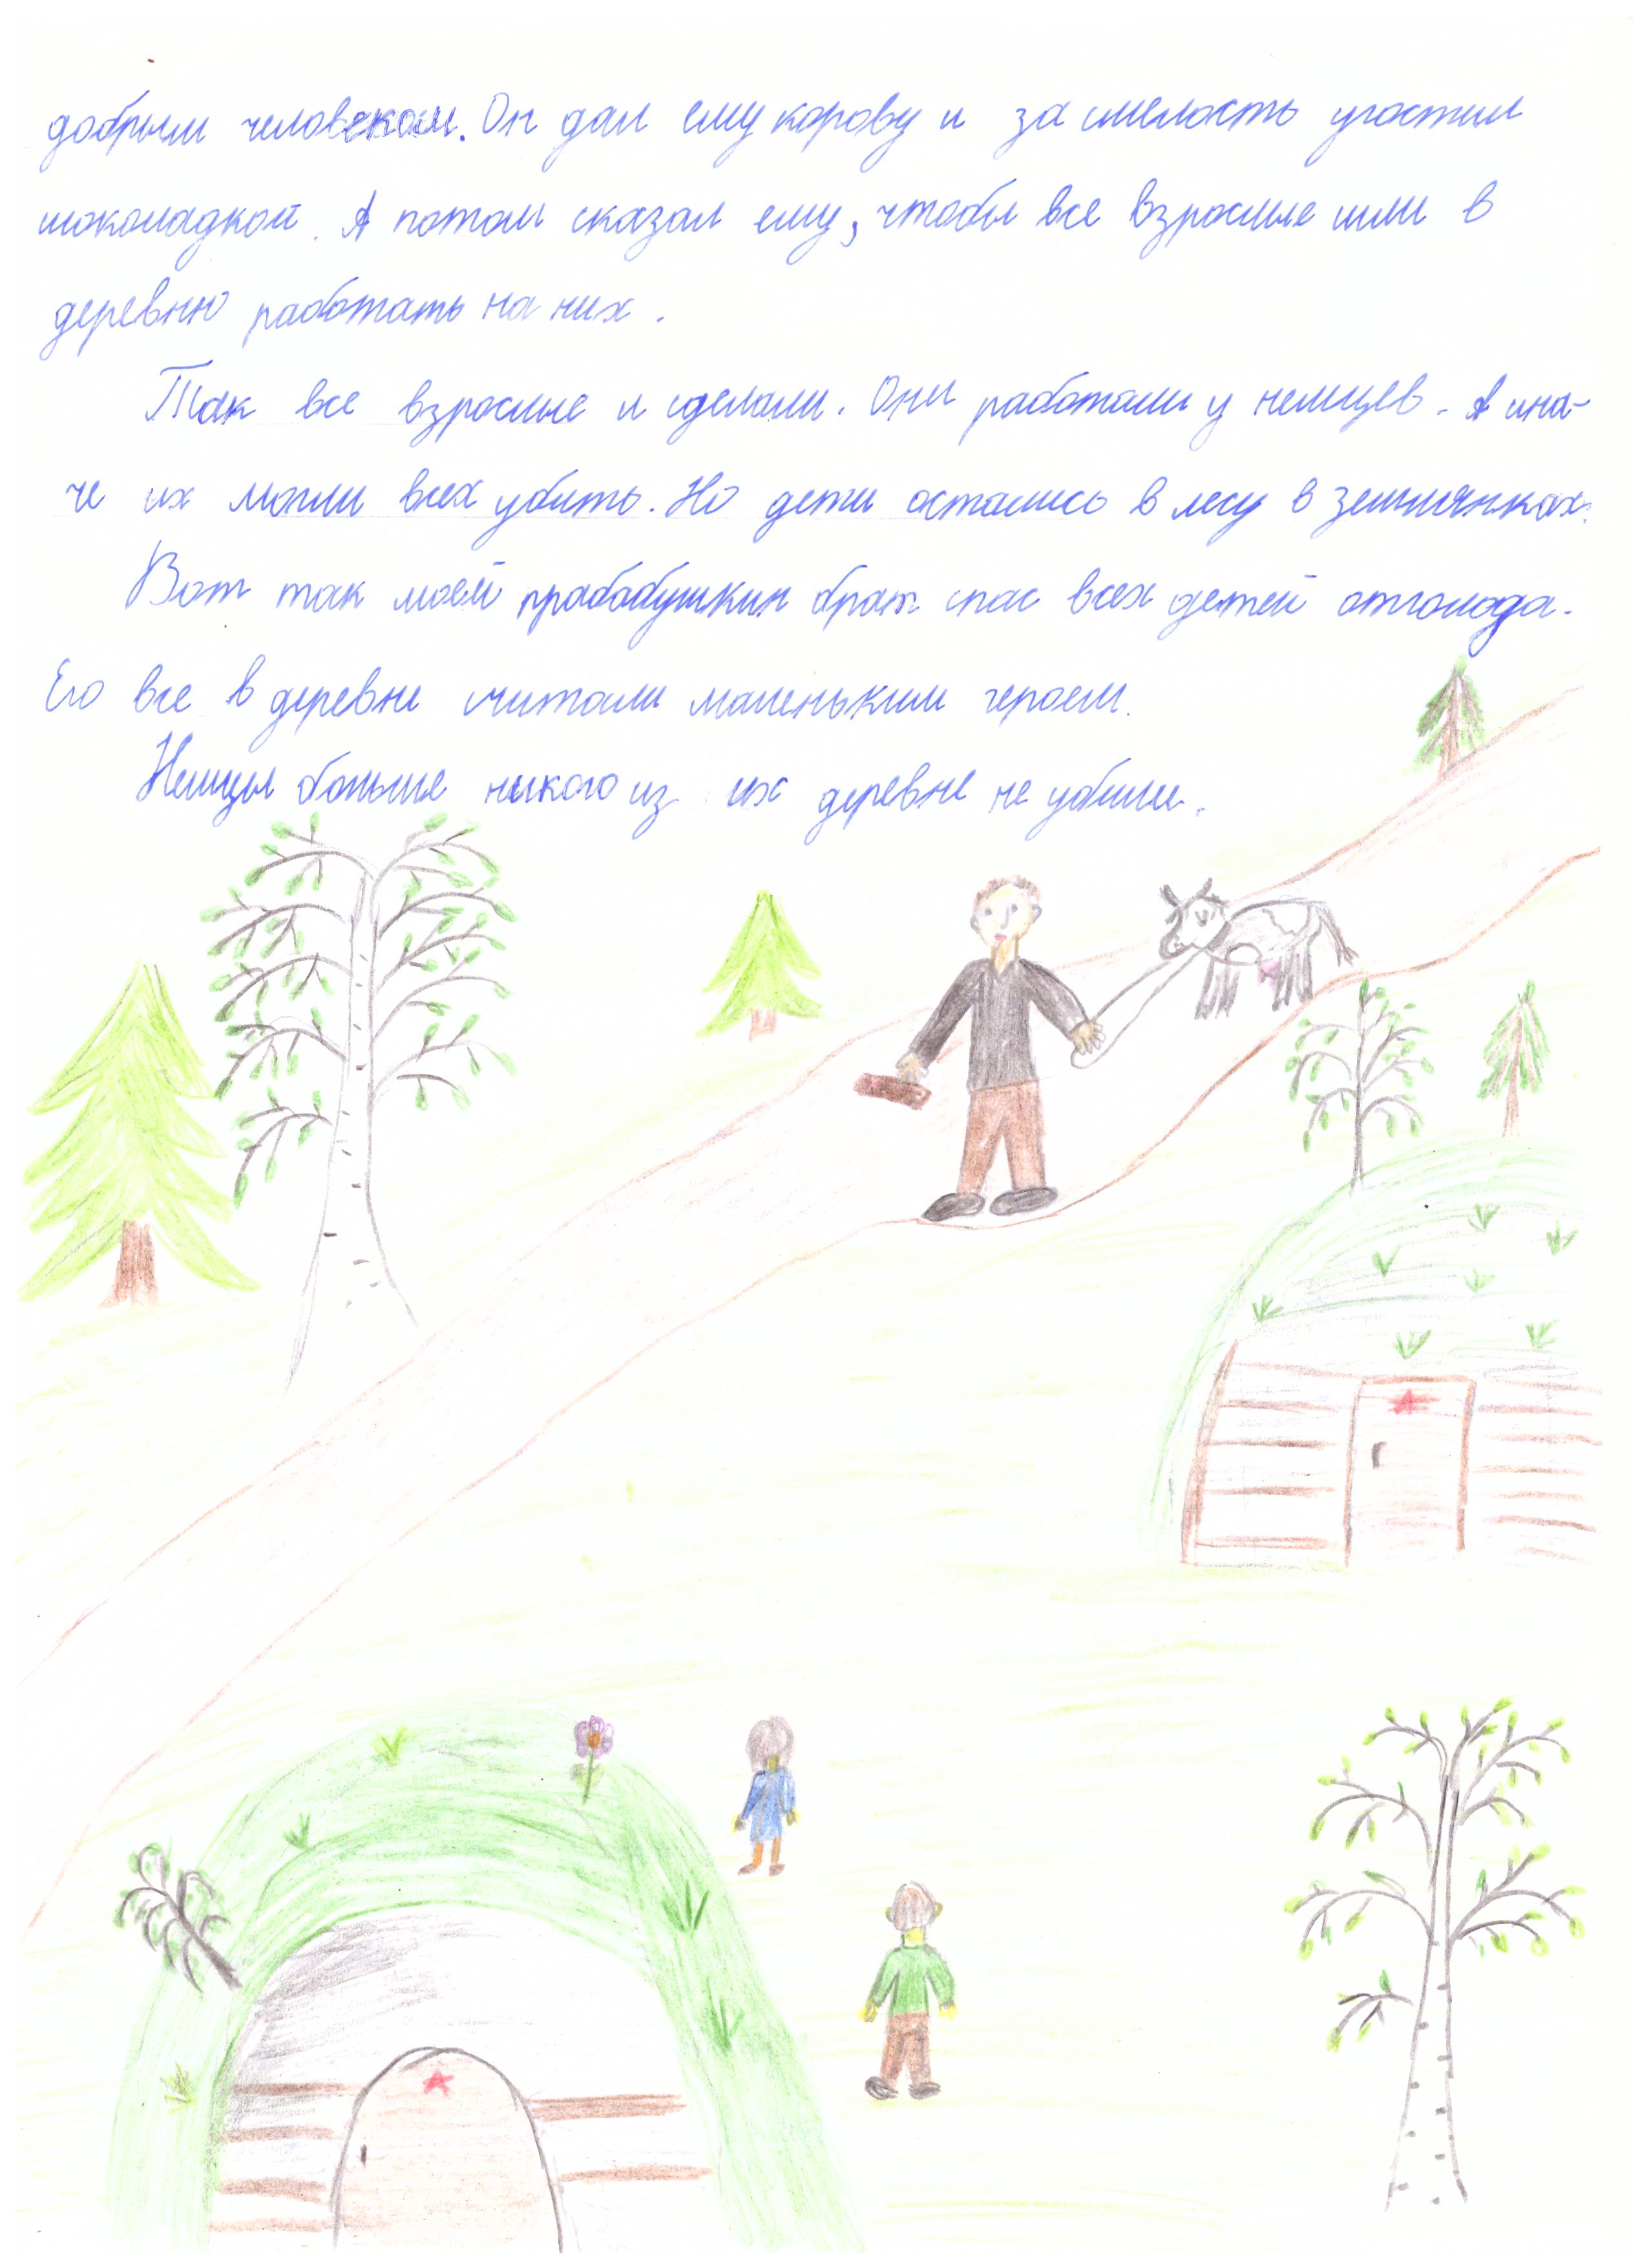 добрым человеком. Он дал ему корову и за смелость угостил
шоколадкой. А потом сказал ему, чтобы все взрослые шли в
деревню работать на них.
Так все взрослые и сделали. Они работали у немцев. А ина-
че их могли всех убить. Но дети остались в лесу в землянках.
Вот так моей прабабушкин брат спас всех детей от голода.
Его все в деревне считали маленьким героем.
Немцы больше никого из их деревне не убили.